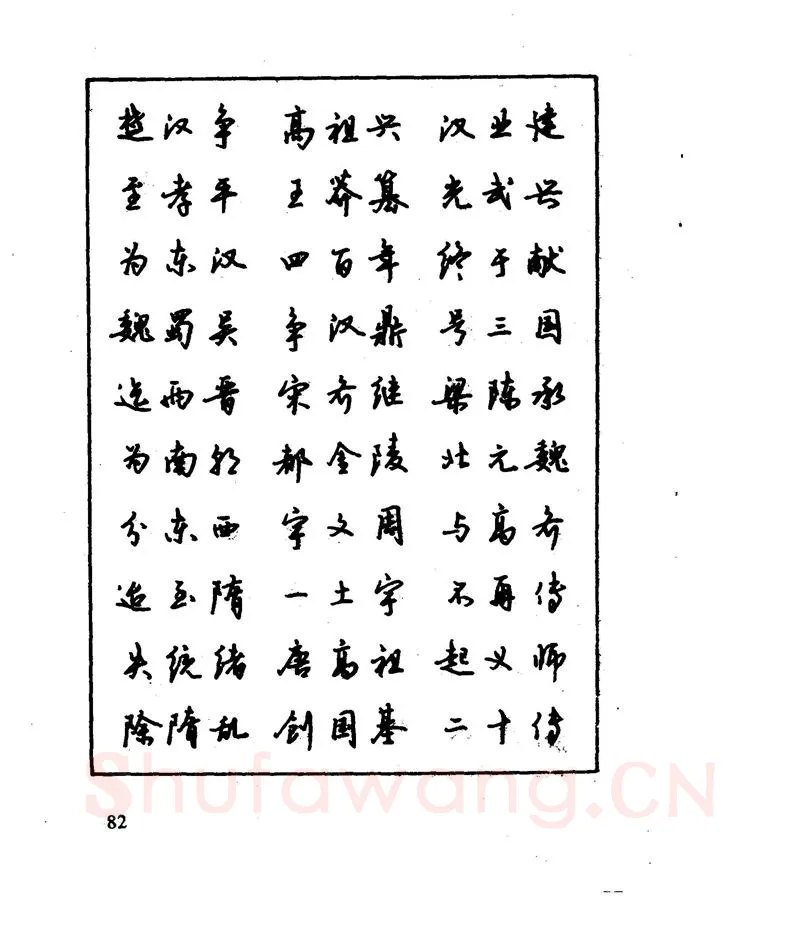 楚汉争 高祖兴 汉业建
至孝平 王莽篡 光武兴
为东汉 四百年 终于献
魏蜀吴 争汉鼎 号三国
迄两晋 宋齐继 梁陈承
为南朝 都金陵 北元魏
分东西 宇文周 与高齐
迨至隋 一土宇 不再传
失统绪 唐高祖 起义师
除隋乱 创国基 二十传
Shufawang.CN
82